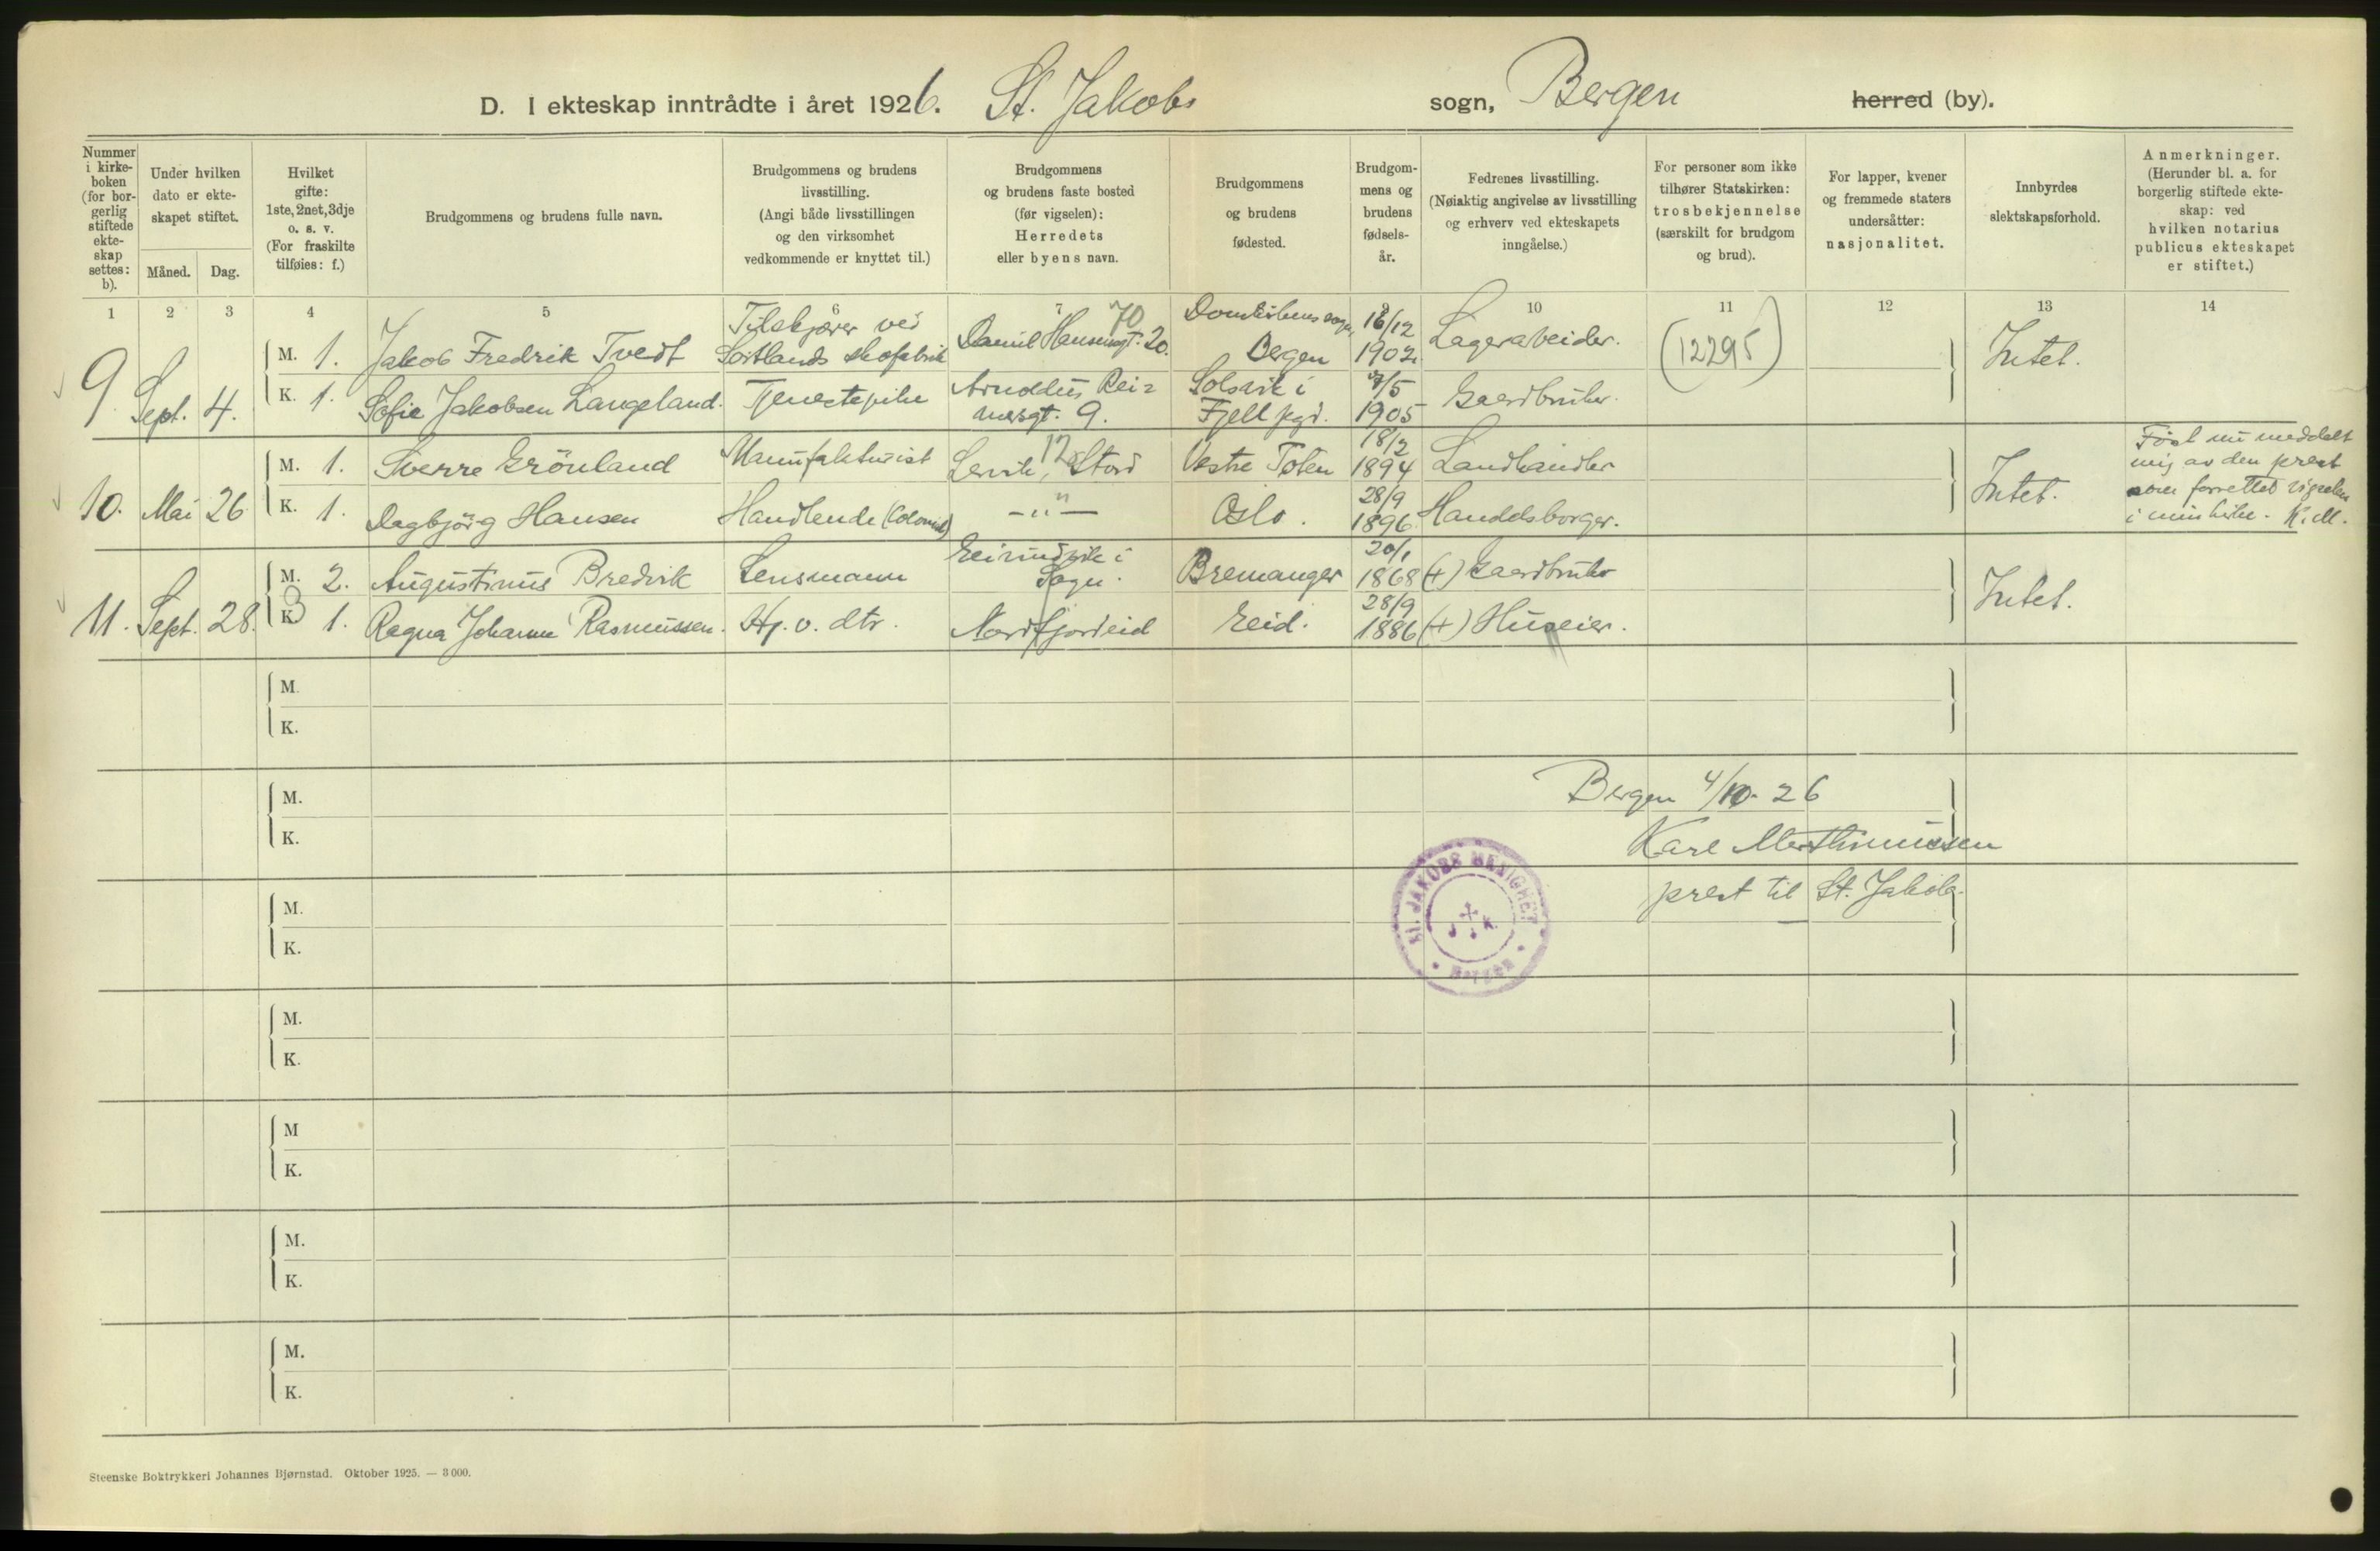 D. I ekteskap inntrådte i året 1926. St. Jakobs sogn, Bergen herred (by).
Nummer
i kirke-
boken
(for bor-
gerlig
stiftede
ekte-
skap
settes:
b).
Under hvilken
dato er ekte-
skapet stiftet.
Måned.
Dag.
Hvilket
gifte:
1ste, 2net, 3dje
o. s. v.
(For fraskilte
tilføies: f.)
Brudgommens og brudens fulle navn.
Brudgommens og brudens
livsstilling.
(Angi både livsstillingen
og den virksomhet
vedkommende er knyttet til.)
Brudgommens
og brudens faste bosted
(før vigselen):
Herredets
eller byens navn.
Brudgommens
og brudens
fødested.
Brudgom-
mens og
brudens
fødsels-
år.
Fedrenes livsstilling.
(Nøiaktig angivelse av livsstilling
og erhverv ved ekteskapets
inngåelse.)
For personer som ikke
tilhører Statskirken:
trosbekjennelse
(særskilt for brudgom
og brud).
For lapper, kvener
og fremmede staters
undersåtter:
nasjonalitet.
Innbyrdes
slektskapsforhold.
Anmerkninger.
(Herunder bl. a. for
borgerlig stiftede ekte-
skap: ved
hvilken notarius
publicus ekteskapet
er stiftet.)
1 2 3 4 5 6 7 8 9 10 11 12 13 14
9. Sept. 4.
M. 1. Jakob Fredrik Tvedt
Tilskjærer ved
Sortlands skofabrik
70
Daniel Hansensgt. 20.
Domkirkens sogn,
Bergen
16/12
1902.
Lagerarbeider.
(12295)
Intet.
K. 1. Sofie Jakobsen Langeland.
Tjenestepike
Arnoldus Rei=
mersgt. 9.
Solsvik i
Fjell pgd.
7/5
1905
Gaardbruker.
10. Mai 26
M. 1. Sverre Grönland
Manufakturist
Lervik, Stord
12
Vestre Toten
18/2
1894
Landhandler
Intet.
Först nu meddelt
mig av den prest
som forrettet vigselen
i min kirke. K. M.
K. 1. Dagbjörg Hansen
Handlende (Colonial)
-"-
Oslo.
28/9
1896
Handelsborger.
11. Sept. 28.
M. 2. Augustinus Bredvik
Lensmann
Eivindvik i
Sogn.
Bremanger
20/1
1868
(+) Gaardbruker
Intet.
K. 1. Ragna Johanne Rasmussen.
Hj. v. dtr.
Nordfjordeid
Eid.
28/9
1886
(+) Huseier.
M.
K.
M.
K.
Bergen 4/10-26
Karl Marthinussen
prest til St. Jakob.
ST. JAKOBS MENIGHET
BERGEN
M.
K.
M.
K.
M
K.
M.
K.
M.
K.
Steenske Boktrykkeri Johannes Bjørnstad. Oktober 1925. — 3 000.